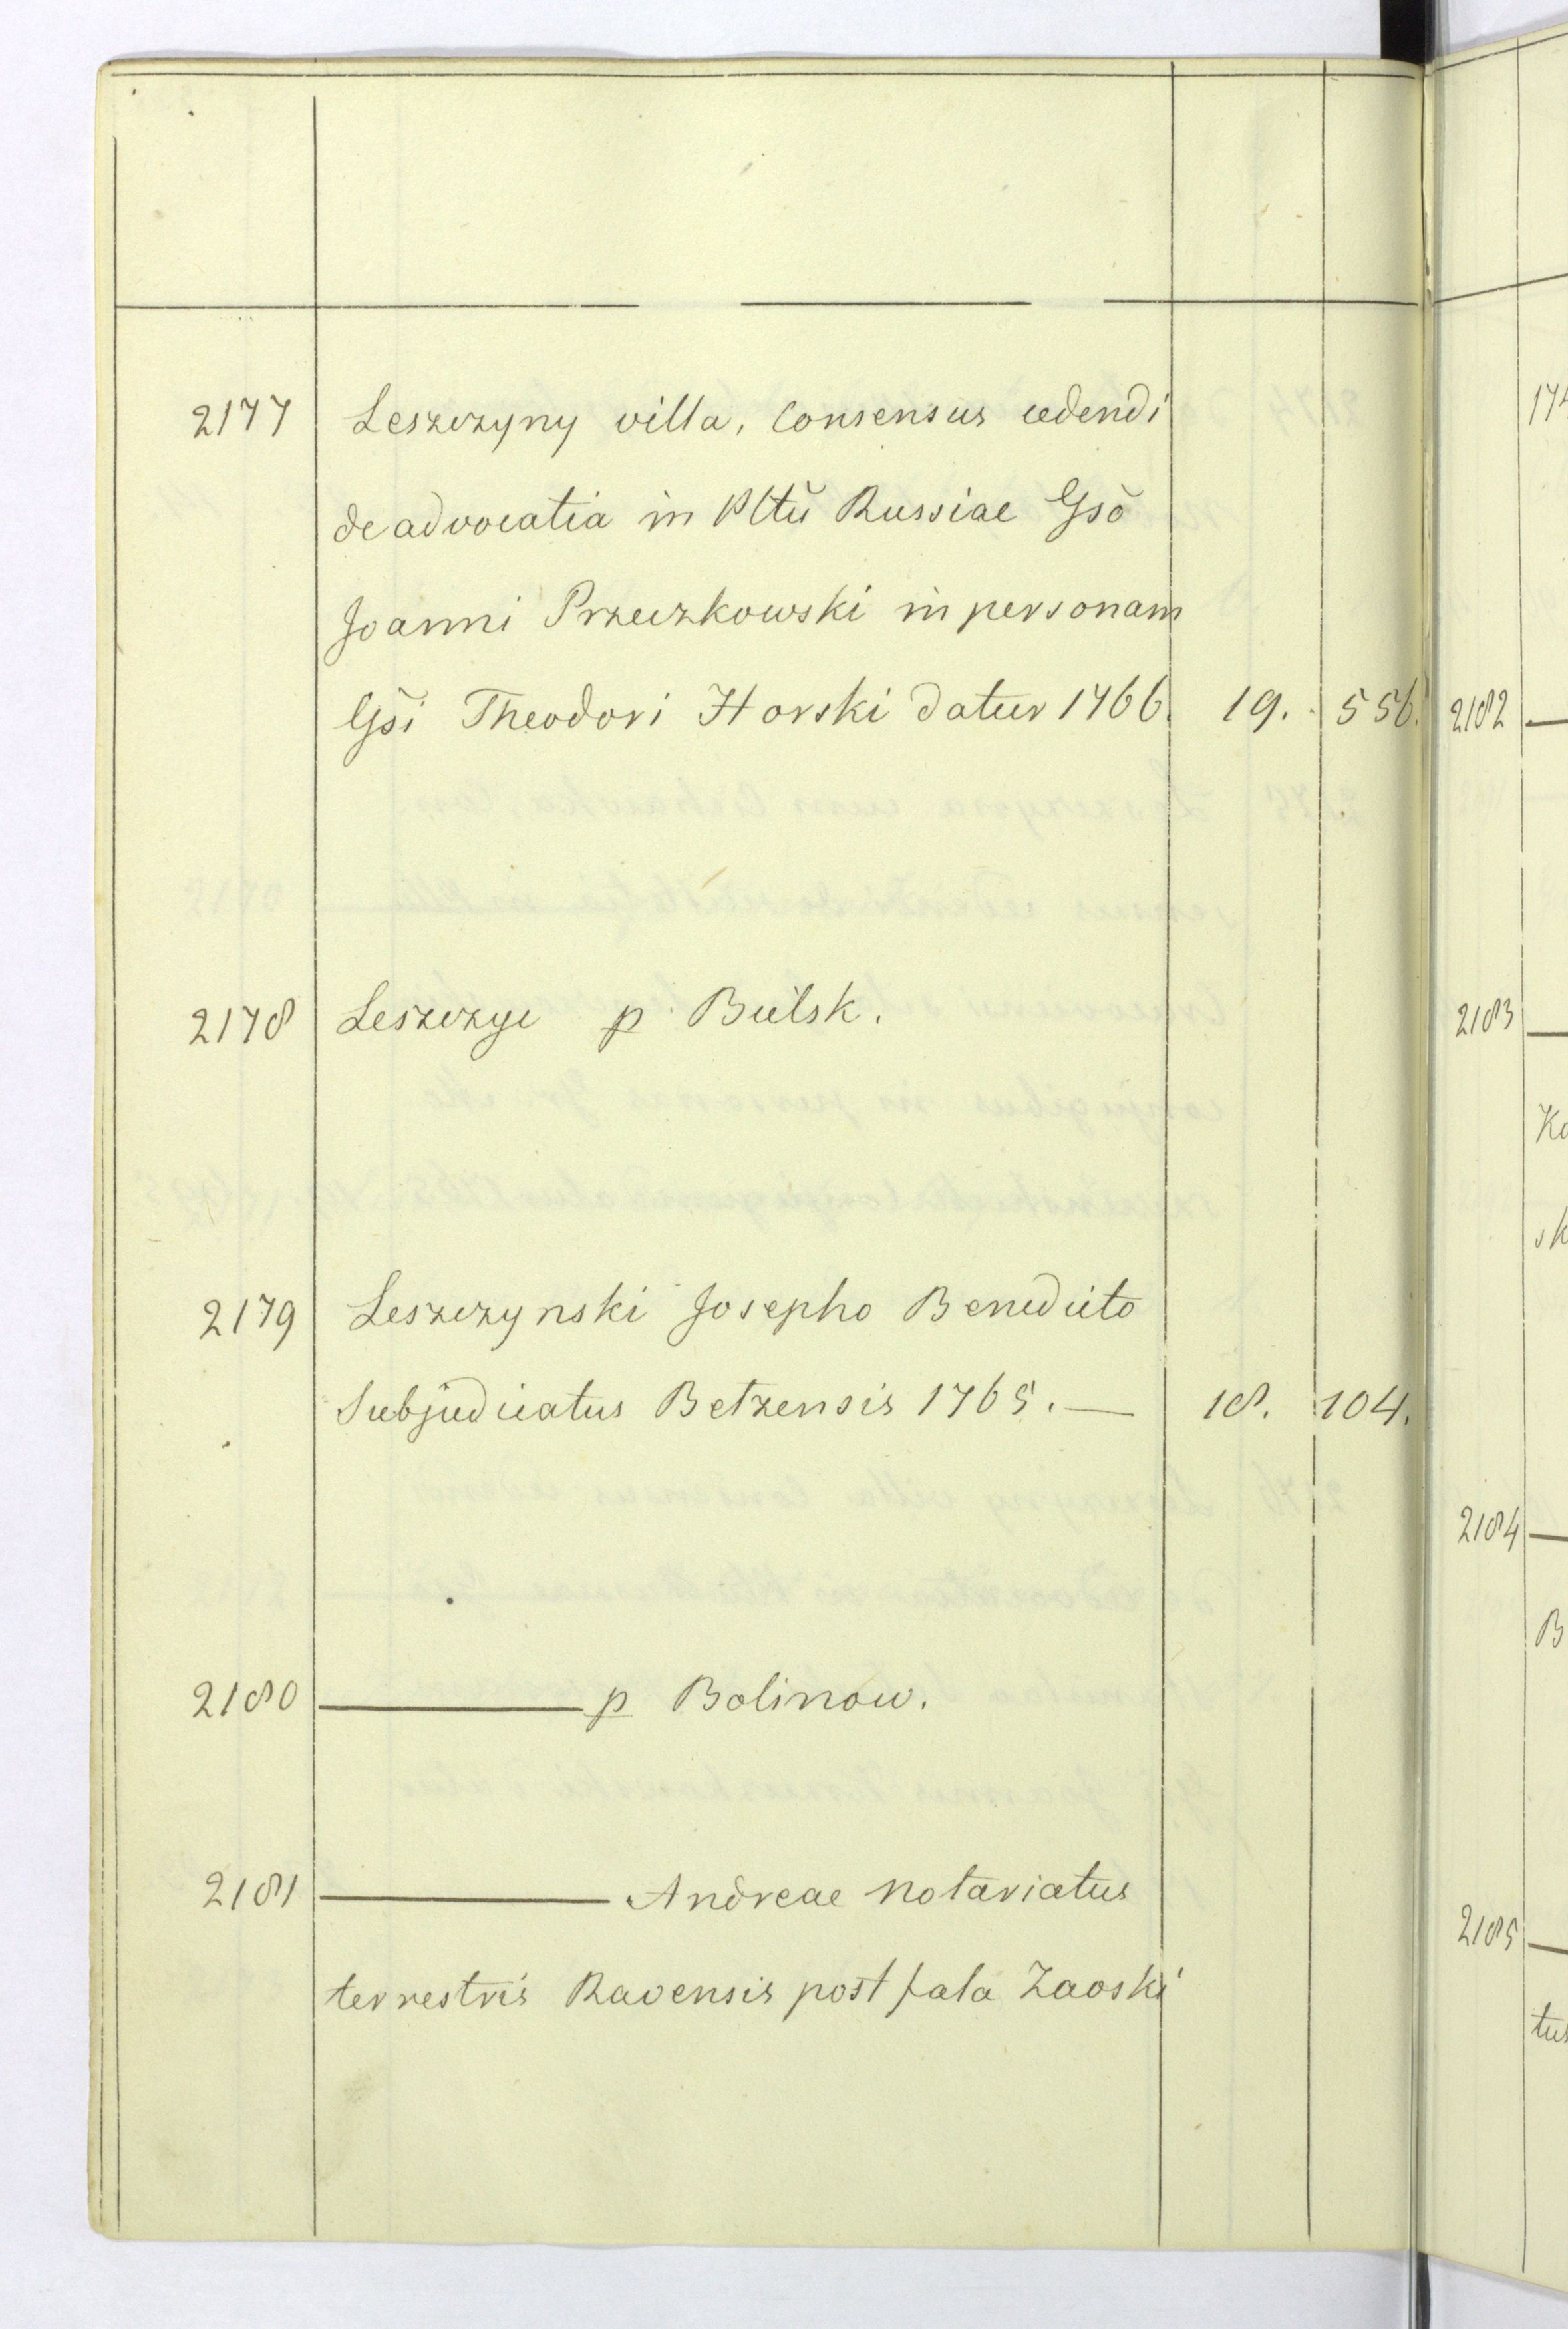 2177 Leszczyny villa, Consensus cedendi
de advocatia in Pltū Russiae Gsō
Joanni Przeczkowski in personam
Gsi Theodori Horski datur 1766. 19. 556.
2178 Leszczyc p. Bielsk.
2179 Leszczynski Josepho Benedicto
Subjudicatus Betzensis 1765. — 18. 104.
2180 ——— p Bolinow.
2181 ——— Andreae notariatus
terrestris Ravensis post fata Zaoski
174
2182 —
2183 —
Ko
sk
2184 —
B
2185 —
tus